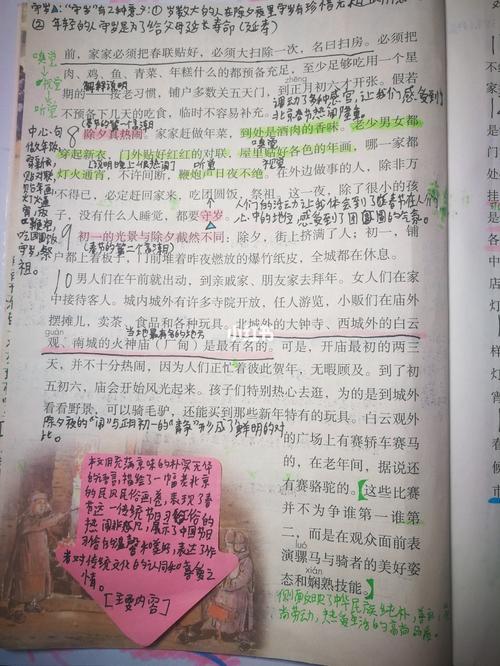 守岁："守岁"有2种意义：① 岁数大的人在除夕夜里守岁有珍惜光阴
(2) 年轻的人守岁是为了给父母延长寿命(延寿)
前，家家必须把春联贴好，必须大扫除一次，名曰扫房。必须把
肉、鸡、鱼、青菜、年糕什么的都预备充足，至少足够吃用一个星
解释说明
期的——按老习惯，铺户多数关五天门，到正月初六才开张。假若
调动了多种感官，让我们感受到
不预备下几天的吃食，临时不容易补充。
北京春节热闹
嗅觉
视觉
听觉
中心句
8
(春节的第一个高潮)
除夕真热闹。家家赶做年菜，到处是酒肉的香味。老少男女都
嗅觉
穿起新衣，门外贴好红红的对联，屋里贴好各色的年画，哪一家都
听觉
视觉
灯火通宵，不许间断，鞭炮声日夜不绝。在外边做事的人，除非万
不得已，必定赶回家来，吃团圆饭，祭祖。这一夜，除了很小的孩
子，没有什么人睡觉，都要守岁。
做年饭
穿新衣
贴对联
贴年画
灯火通宵
放鞭炮
吃团圆饭
守岁，祭祖。
9
初一的光景与除夕截然不同：除夕，街上挤满了人；初一，铺
(春节的第二个高潮)
户都上着板子，门前堆着昨夜燃放的爆竹纸皮，全城都在休息。
10
男人们在午前就出动，到亲戚家、朋友家去拜年。女人们在家
中接待客人。城内城外有许多寺院开放，任人游览，小贩们在庙外
摆摊儿，卖茶、食品和各种玩具。北城外的大钟寺、西城外的白云
guàn
当地最有名的地方
观、南城的火神庙（厂甸）是最有名的。可是，开庙最初的两三
天，并不十分热闹，因为人们正忙着彼此贺年，无暇顾及。到了初
五初六，庙会开始风光起来。孩子们特别热心去逛，为的是到城外
看看野景，可以骑毛驴，还能买到那些新年特有的玩具。白云观外
除夕夜的"闹"与正月初一的"静"形成了鲜明的对
比。
的广场上有赛轿车赛马
的，在老年间，据说还
有赛骆驼的。这些比赛
并不为争谁第一谁第
二，而是在观众面前表
luó
演骡马与骑者的美好姿
xián
态和娴熟技能。
侧面反映了中华民族纯朴
尚劳动，热爱生活的高尚
校文用充满京味的朴实无华
的语言，描绘了一幅老北京
的民风民俗画卷，表现了春
节这一传统节日习俗的
热闹非凡，展示了中国节日
习俗的温馨和美好，表达了作
者对传统文化的认同和尊赞之
情。
[主要内容]
小红书